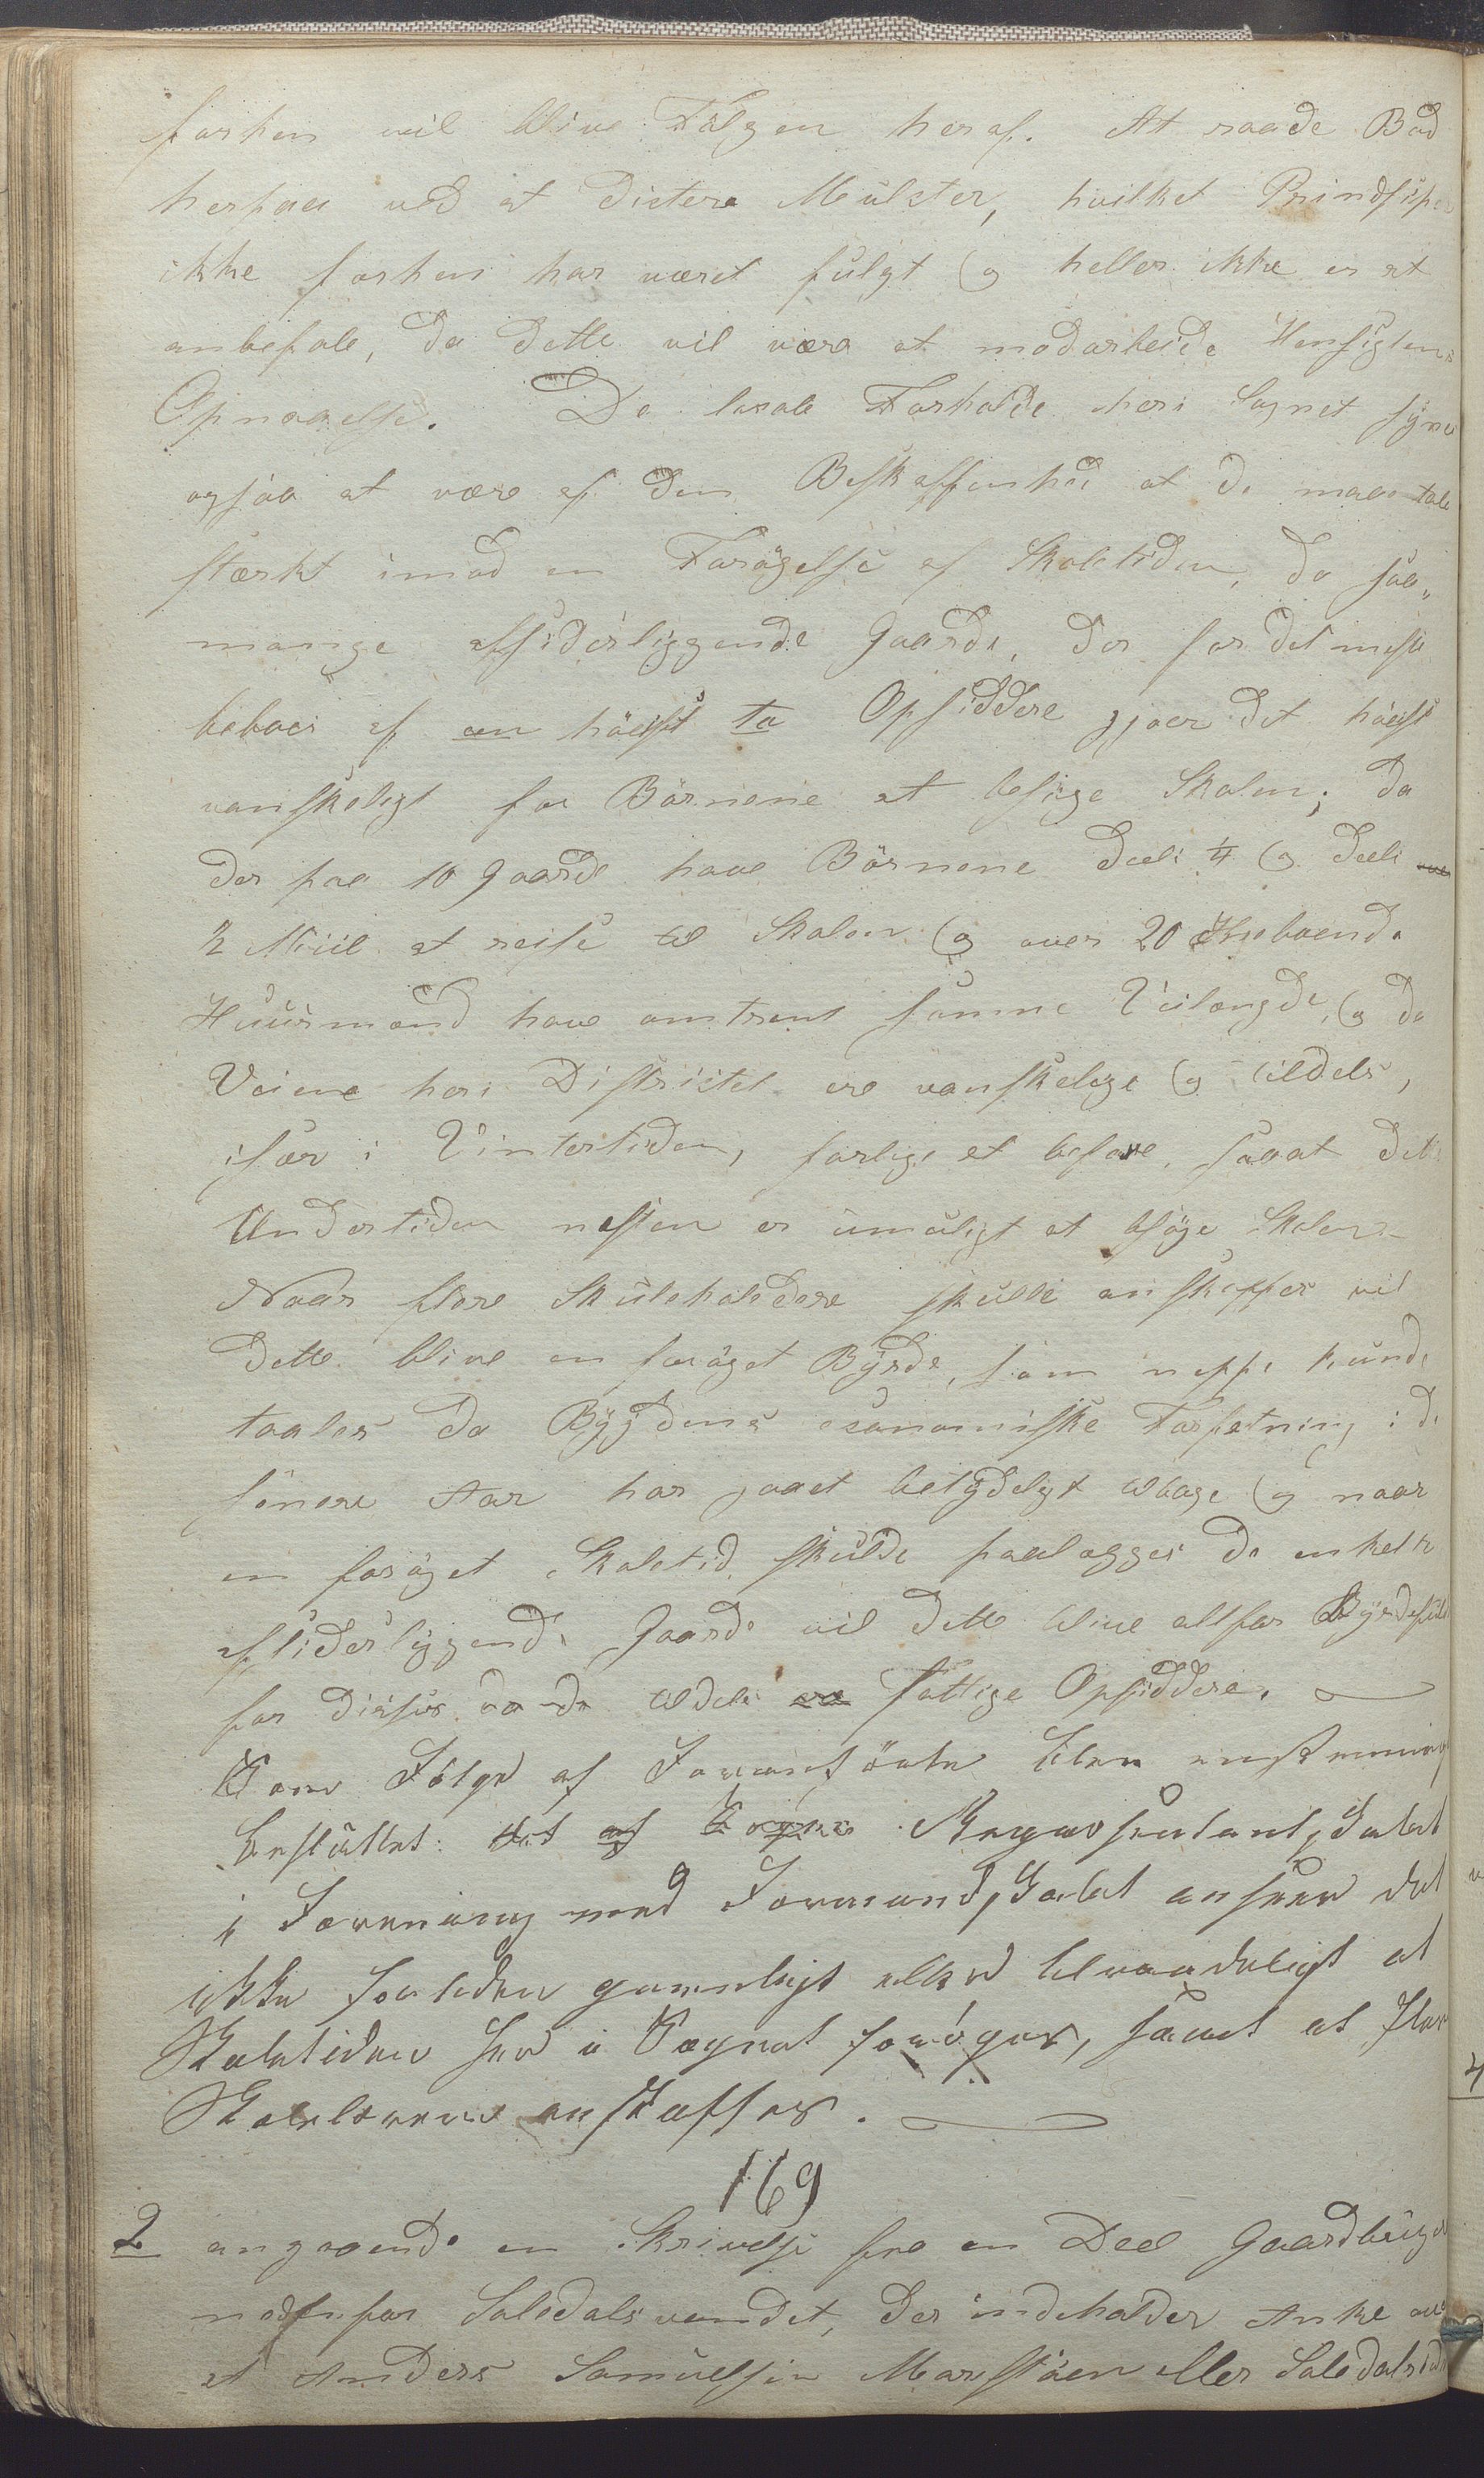 forhen vil blive Følgen heraf. At raade Bod
herpaa ved at dictere Mulkter, hvilket Prindsipe
ikke forhen har været fulgt og heller ikke er at
anbefale, da dette vil være at modarbeide Hensigtens
Opnaaelse. De locale Forholde heri Sognet synes
ogsaa at være af den Beskaffenhed at de maae tale
stærkt imod en Forøgelse af Skoletiden, da saa„
mange afsidesliggende Gaarde, der for det meste
beboes af een høist to Opsiddere gjøer det høist
vanskeligt for Børnene at besøge Skolen; da
der paa 10 Gaarde have Børnene deels ¼ og deels
½ Miil at reise til Skolen og over 20 Huusmænd have omtrent samme Veilængde, og da
Veiene her i Districtet ere vanskelige og tildels,
især i Vintertiden, farlige at befare, saaat dette
Undertiden nesten er umuligt at besøge Skolen.
Naar flere Skoleholdere skulle anskaffes vil
dette blive en forøget Byrde, som neppe kunde
taales da Bygdens economiske Forfatning i de
senere Aar har gaaet betydeligt tilbage og naar
en forøget Skoletid skulde paalægges de enkelte
afsidesliggende Gaarde vil dette blive altfor Byrdefuldt
for disses da de tildels ere fattige Opsiddere.
Som Følge af Foranførte blev enstemmig
besluttet: at af Sognets Repræsentantskabet
i Forening med Formandskabet ansees det
ikke for tiden gavnligt eller tilraadeligt at
Skoletiden her i Sognet forøges, samt at flere
Skolelærere anskaffes.
169
2 angaaende en Skrivelse fra en Deel Gaardbruger
nedenfor Saledalsvandet, der indeholder Anke over
at Anders Samuelsen Morstøen eller Saledals